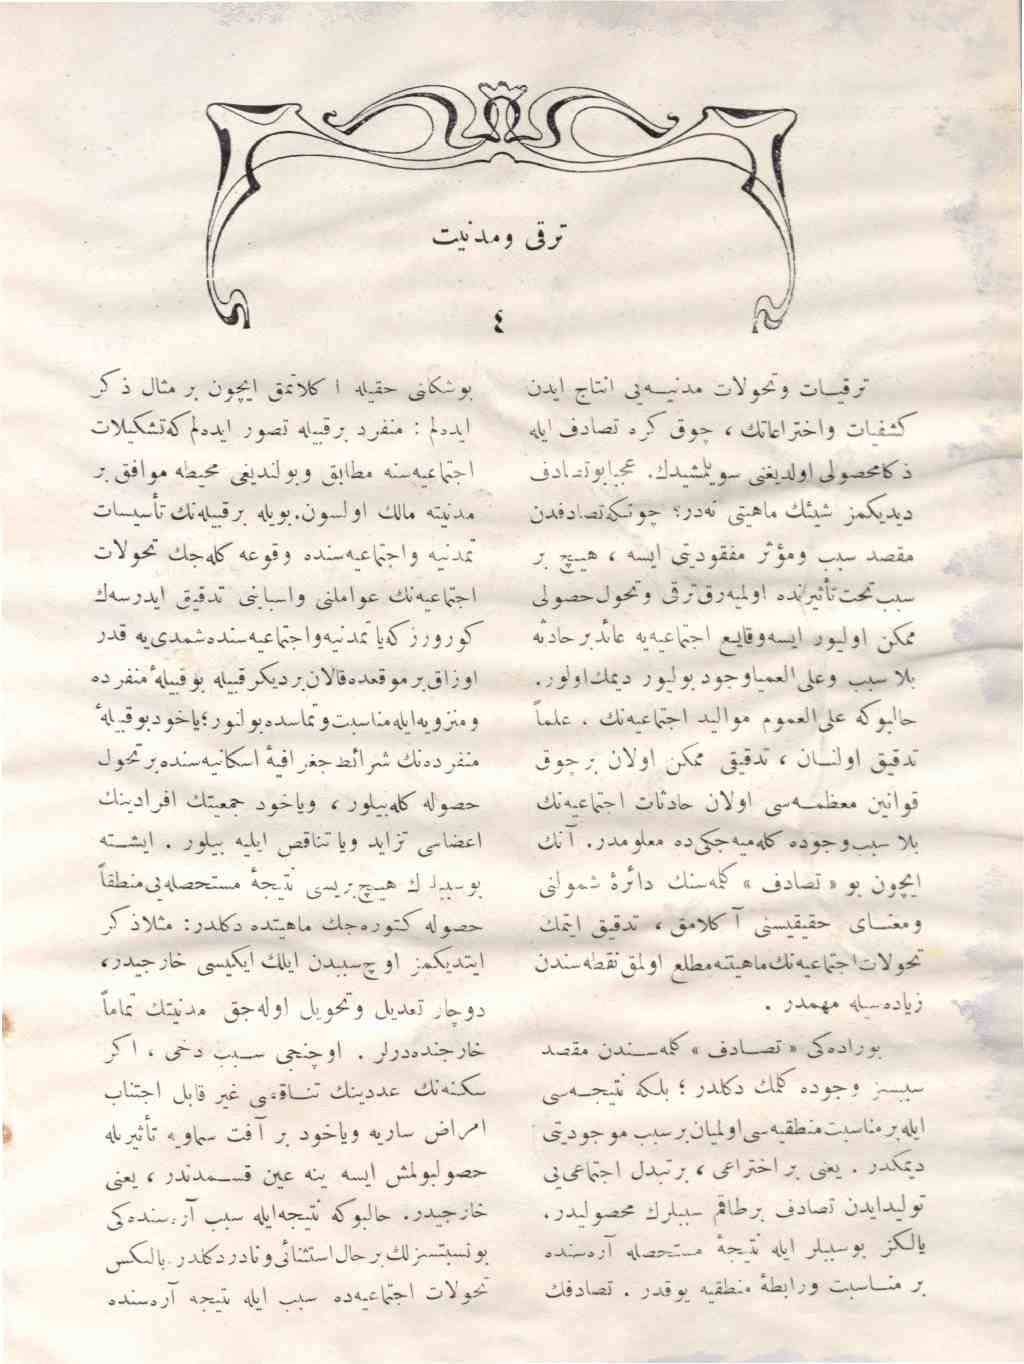 ترقی ومدنیت
٤
ترقیـات وتحولات مدنیـه‌یی انتاج ایدن
کشفیات واختراعاتك ، چوق کره تصادف ایله
ذکا محصولی اولدیغنی سویلمشیدك. عجبا بوتصادف
دیدیکمز شیئك ماهیتی نه‌در؟ چونکه تصادفدن
مقصد سبب ومؤثر مفقودیتی ایسه ، هیـچ بر
سبب تحت تأثیرنده اولمیه‌رق ترقی وتحول حصولی
ممکن اولیور ایسه وقایع اجتماعیه‌یه عائد بر حادثه
بلا سبب وعلی العمیا وجود بولیور دیمك اولور.
حالبوکه علی العموم موالید اجتماعیه‌نك ، علماً
تدقیق اولنـان ، تدقیقی ممکن اولان برچوق
قوانین معظمـه‌سی اولان حادثات اجتماعیه‌نك
بلا سبب وجوده کله‌میه‌جکی‌ده معلومدر. آنك
ایچون بو « تصادف » کلمه‌سنك دائرهٔ شمولنی
ومعنـای حقیقیسنی آکلامق ، تدقیق ایتمك
تحولات اجتماعیه‌نك ماهیتنه مطلع اولمق نقطه‌سندن
زیاده‌سیله مهمدر .
بوراده‌کی « تصـادف » کلمه‌سـندن مقصد
سببسز وجوده کلمك دکلدر ؛ بلکه نتیجـه‌سی
ایله بر مناسبت منطقیه‌سی اولمیان بر سبب موجودیتی
دیمکدر . یعنی بر اختراعی ، بر تبدل اجتماعی‌یی
تولید ایدن تصادف برطاقم سببلرك محصولیدر.
یالکز بوسببلر ایله نتیجهٔ مستحصله آره‌سنده
بر منـاسبت ورابطهٔ منطقیه یوقدر . تصادفك
بوشکلنی حقیله اکلاتمق ایچون بر مثال ذکر
ایده‌لم : منفرد برقبیله تصور ایده‌لم که تشکیلات
اجتماعیه‌سنه مطابق وبولندیغی محیطه موافق بر
مدنیته مالك اولسون. بویله برقبیله‌نك تأسیسات
تمدنیه واجتماعیه‌سنده وقوعه کله‌جك تحولات
اجتماعیه‌نك عواملنی واسبابنی تدقیق ایدرسه‌ك
کورورز که یا تمدنیه واجتماعیه‌سنده شمدی‌یه قدر
اوزاق بر موقعده قالان بردیکر قبیله بوقبیلهٔ منفرده
ومنزویه ایله مناسبت وتماسده بولنور ؛ یاخود بوقبیلهٔ
منفرده‌نك شرائط جغرافیهٔ اسکانیه‌سنده برتحول
حصوله کله‌بیلور ، ویاخود جمعیتك افرادینك
اعضاسی تزاید ویا تناقص ایلیه بیلور . ایشـته
بوسببلرك هیـچ بریسی نتیجهٔ مستحصله‌یی منطقاً
حصوله کتوره‌جك ماهیتده دکلدر: مثلا ذکر
ایتدیکمز اوچ سببدن ایلك ایکیسی خارجیدر،
دوچار تعدیل وتحویل اوله‌جق مدنیتك تماماً
خارجنده‌درلر . اوچنجی سـبب دخی ، اکر
سکنه‌نك عددینك تنـاقصی غیر قابل اجتناب
امراض ساریه ویاخود بر آفت سماویه تأثیریله
حصولبولمش ایسه ینه عین قسـمدندر ، یعنی
خارجیدر. حالبوکه نتیجه ایله سبب آره‌سنده‌کی
بونسبتسزلك بر حال استثنائی ونادر دکلدر. بالعکس
تحولات اجتماعیه‌ده سبب ایله نتیجه آره‌سنده